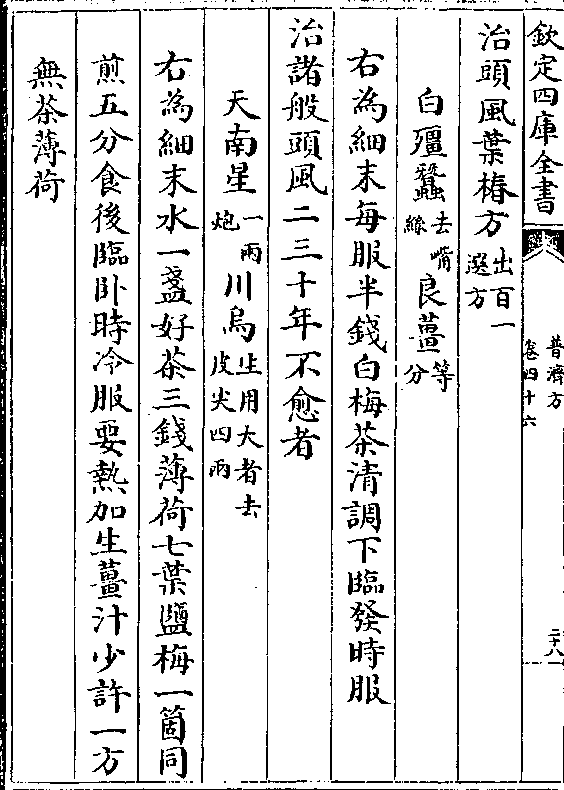 欽定四庫全書
普濟方
卷四十六
二十八
治頭風葉椿方出百一選方
白殭蠶去嘴絲良薑等分
右為細末每服半錢白梅茶清調下臨發時服
治諸般頭風二三十年不愈者
天南星一兩炮川烏生用大者去皮尖四兩
右為細末水一盞好茶三錢薄荷七葉鹽梅一箇同
煎五分食後臨卧時冷服要熱加生薑汁少許一方
無茶薄荷